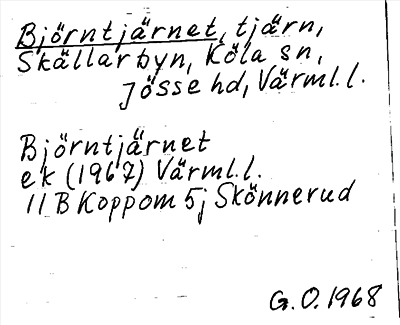 Björntjärnet, tjärn,
Skällarbyn, Köla sn,
Jösse hd, Värml.l.
Björntjärnet
ek (1967) Värml.l.
11 B Koppom 5j Skönnerud
G.O. 1968